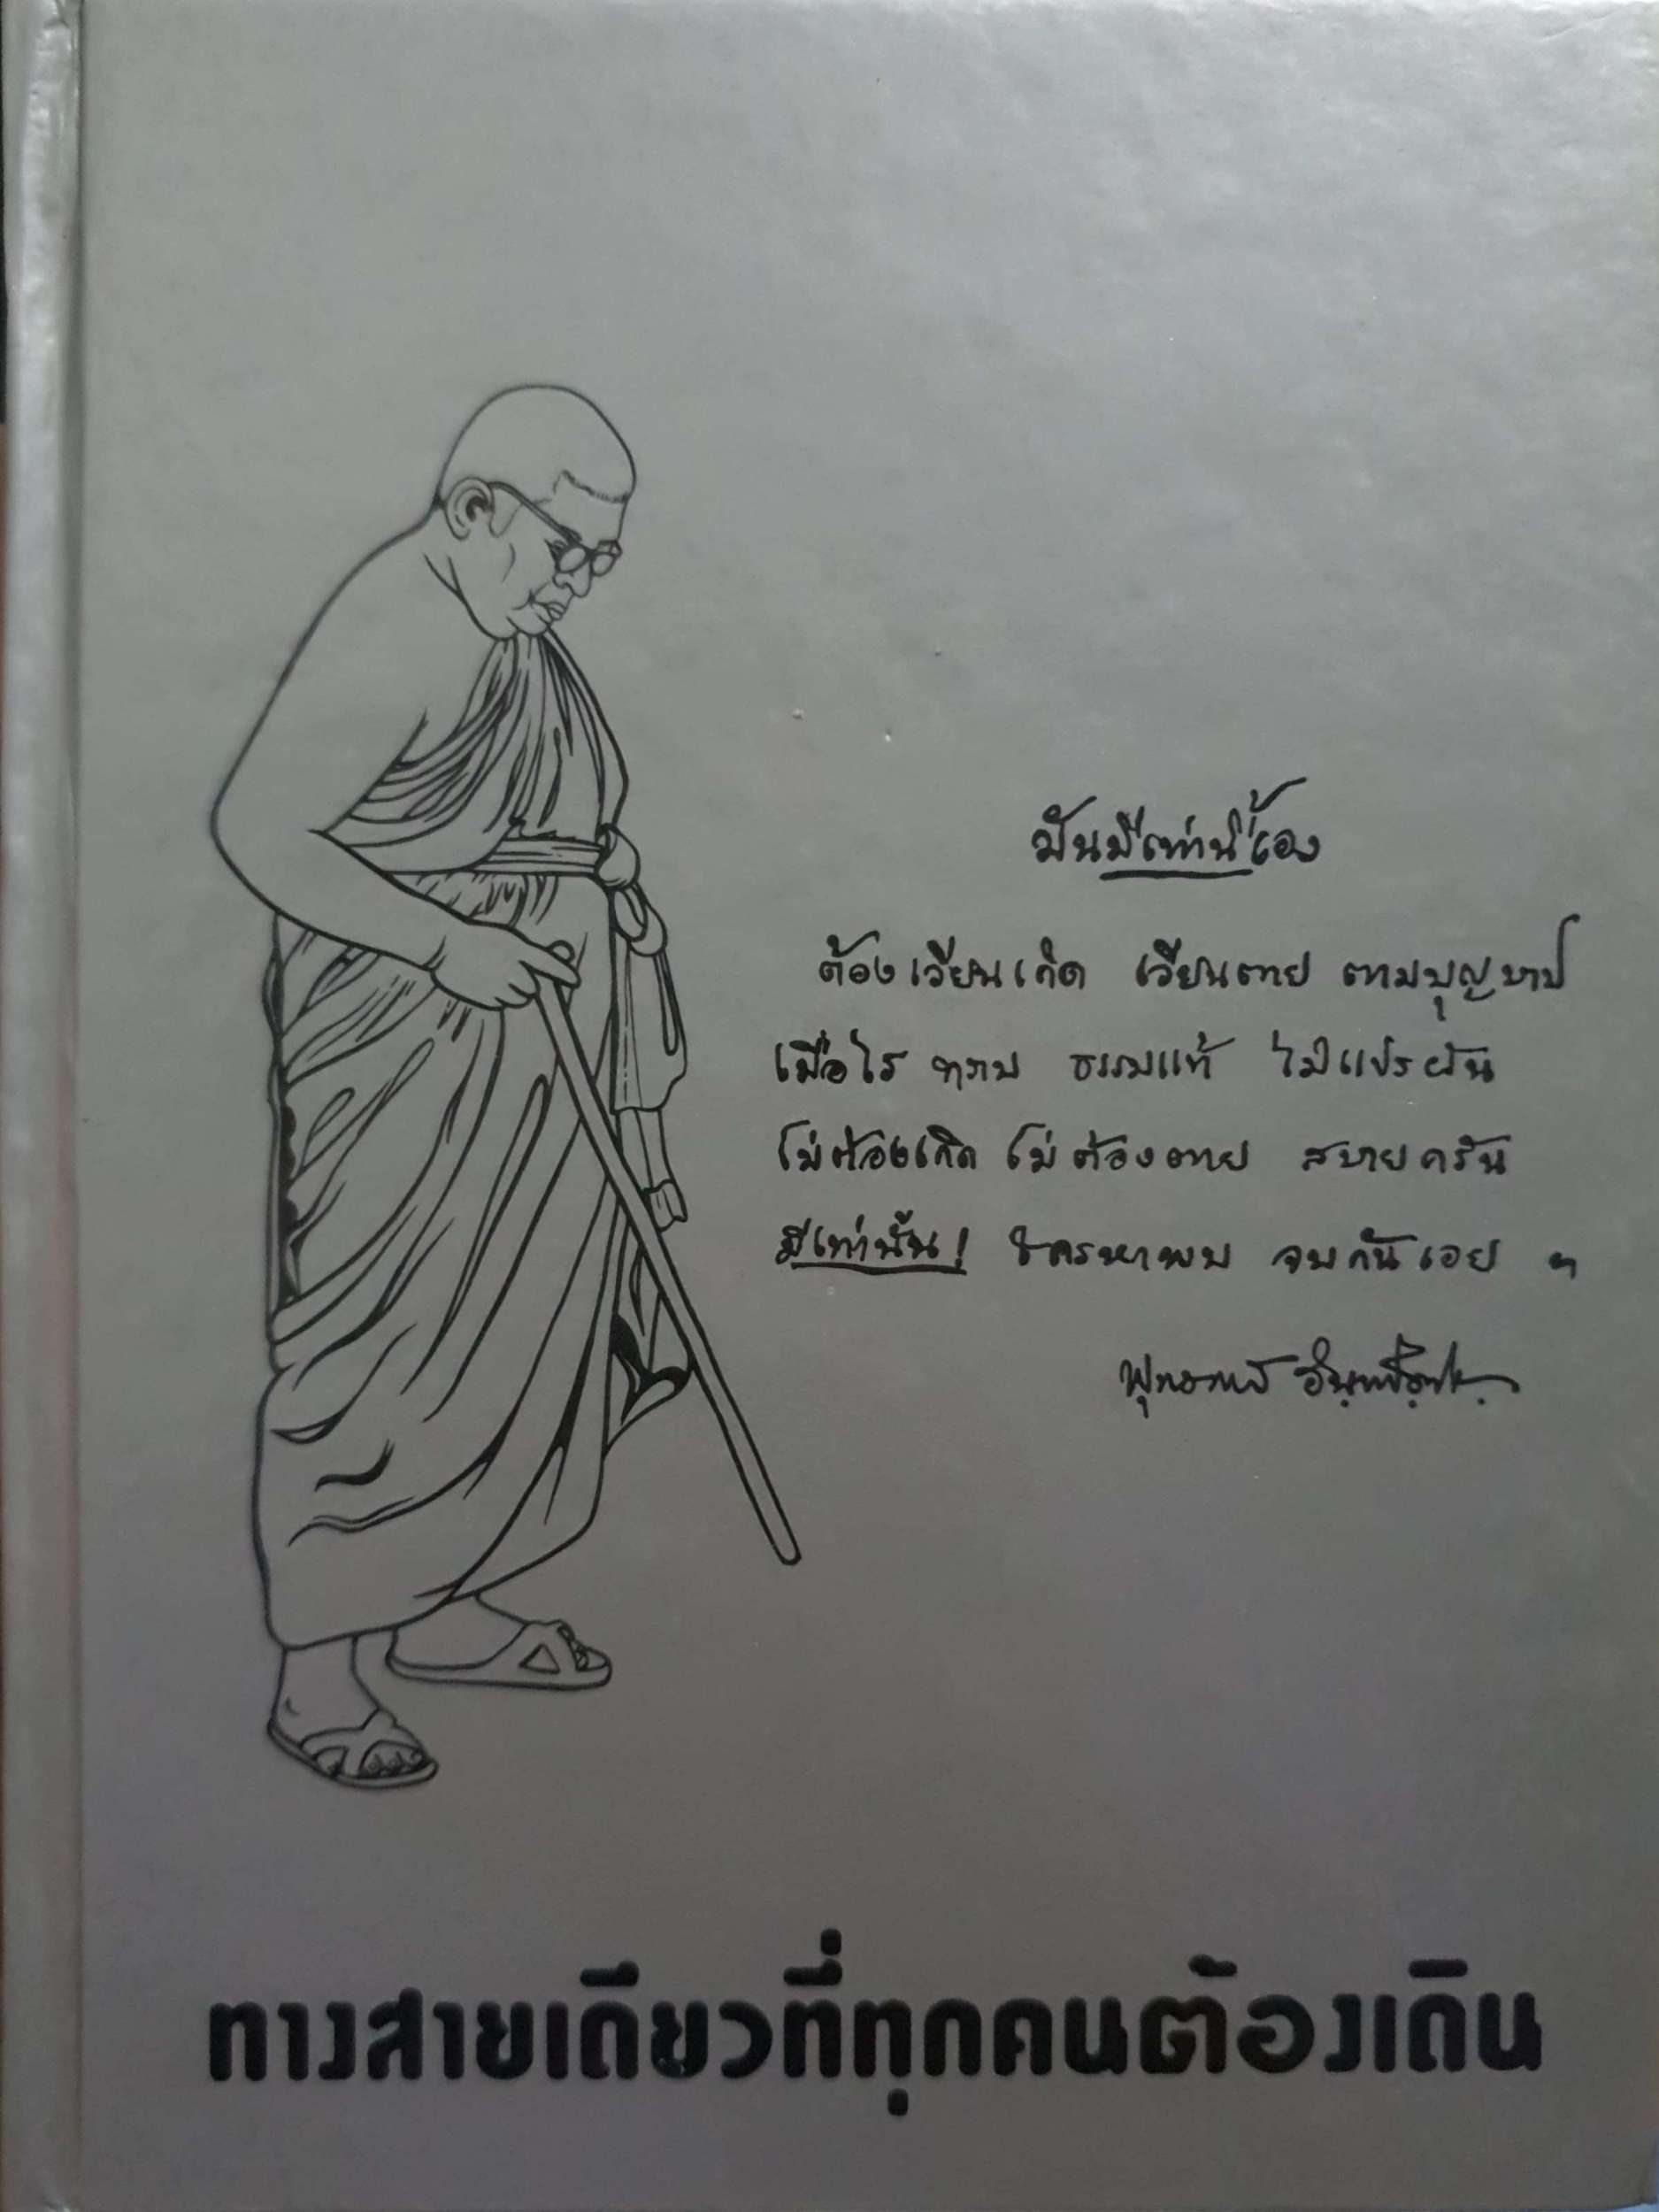 มันมีเท่านี้เอง
ต้องเวียนเกิด เวียนตาย ตามบุญบาป
เมื่อไร ทราบ ธรรมแท้ ไม่แปรผัน
ไม่ต้องเกิด ไม่ต้องตาย สบายครัน
มีเท่านั้น! ใครหาพบ จบกันเอย ๆ
พุทธทาส อินฺทปญฺโญ
ทางสายเดียวที่ทุกคนต้องเดิน